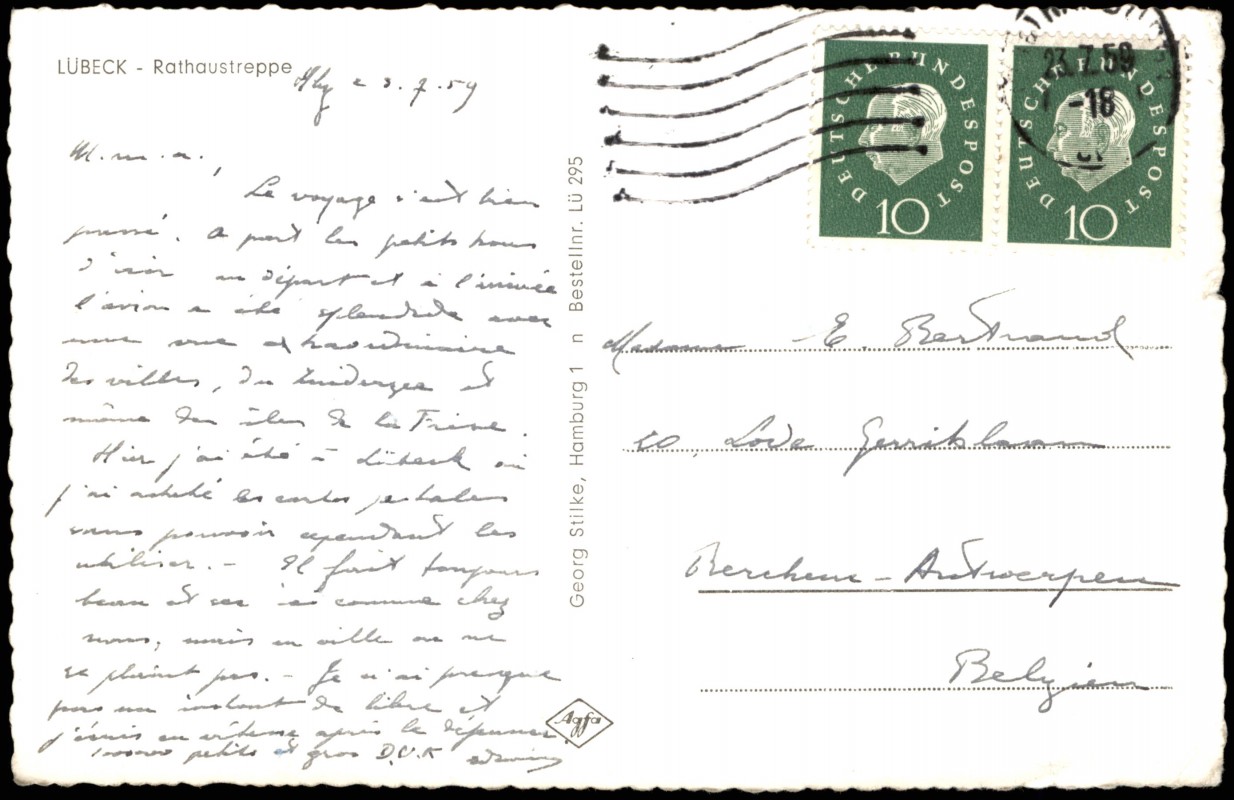 LÜBECK - Rathaustreppe
Hbg 23.7.59
M.m.a.,
Le voyage s'est bien
passé. A part les petits trous
d'air au départ et à l'arrivée
l'avion a été splendide avec
une vue extraordinaire
des villes, du Zuiderzee et
même des îles de la Frise.
Hier j'ai été à Lübeck où
j'ai acheté les cartes postales
sans pouvoir cependant les
utiliser. - Il fait toujours
beau et sec ici comme chez
nous, mais en ville on ne
se plaint pas. - Je n'ai presque
pas un instant de libre et
j'écris en vitesse après le déjeuner.
100000 petits et gros D.U.K
Georg Stilke, Hamburg 1 n Bestellnr. Lü 295
Agfa
DEUTSCHE BUNDESPOST
10
DEUTSCHE BUNDESPOST
10
23.7.59
-18
Madame E. Bertrand
Lode Gerrikslaan
Berchem - Antwerpen
Belgien